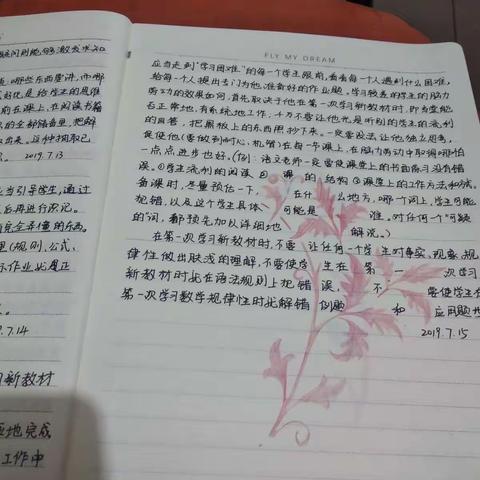 疑问则能够激发求知
哪些东西要讲,而哪
是给学生的思维
前在课上,在阅读书籍
的全部储备里,把
出来。这种摘取已
2019.7.13
当引导学生,通过
后再进行识记。
完全弄懂的东西。
里(规则、公式、
示作业,尤是正
7.14
新教材
地完成
工作中
FLY MY DREAM
应当走到“学习困难”的每一个学生跟前,看看每一个人遇到什么困难,
给每一个人提出专门为他准备好的作业题。学习较差的学生的脑力
劳动的效果如何,首先取决于他在第一次学习新教材时,即当堂能
否正常地、有系统地工作,千万不要让他光是听别的学生的流利
的回答,把黑板上的东西照抄下来。一定要设法让他独立思考,
促使他(要做到耐心、机智)在每一节课上,在脑力劳动中取得哪怕
一点点进步也好。(例:语文老师一定要使课堂上的书面练习没有错
误。①学生流利的阅读 ② 课 的结构 ③课堂上的工作方法和方式
备课时,尽量预估一下, 在什 么地方,哪个词上,学生可能
犯错,以及这个学生具体 可能是 谁。对任何一个“可疑
的”词,都预先加以详细地 解说。)
在第一次学习新教材时,不要让任何一个学生对事实、现象、规
律性做出肤浅的理解,不要使学生在第一次学习
新教材时就在语法规则上犯错误,不要使学生在
第一次学习数学规律性时就解错例题和应用题
2019.7.15